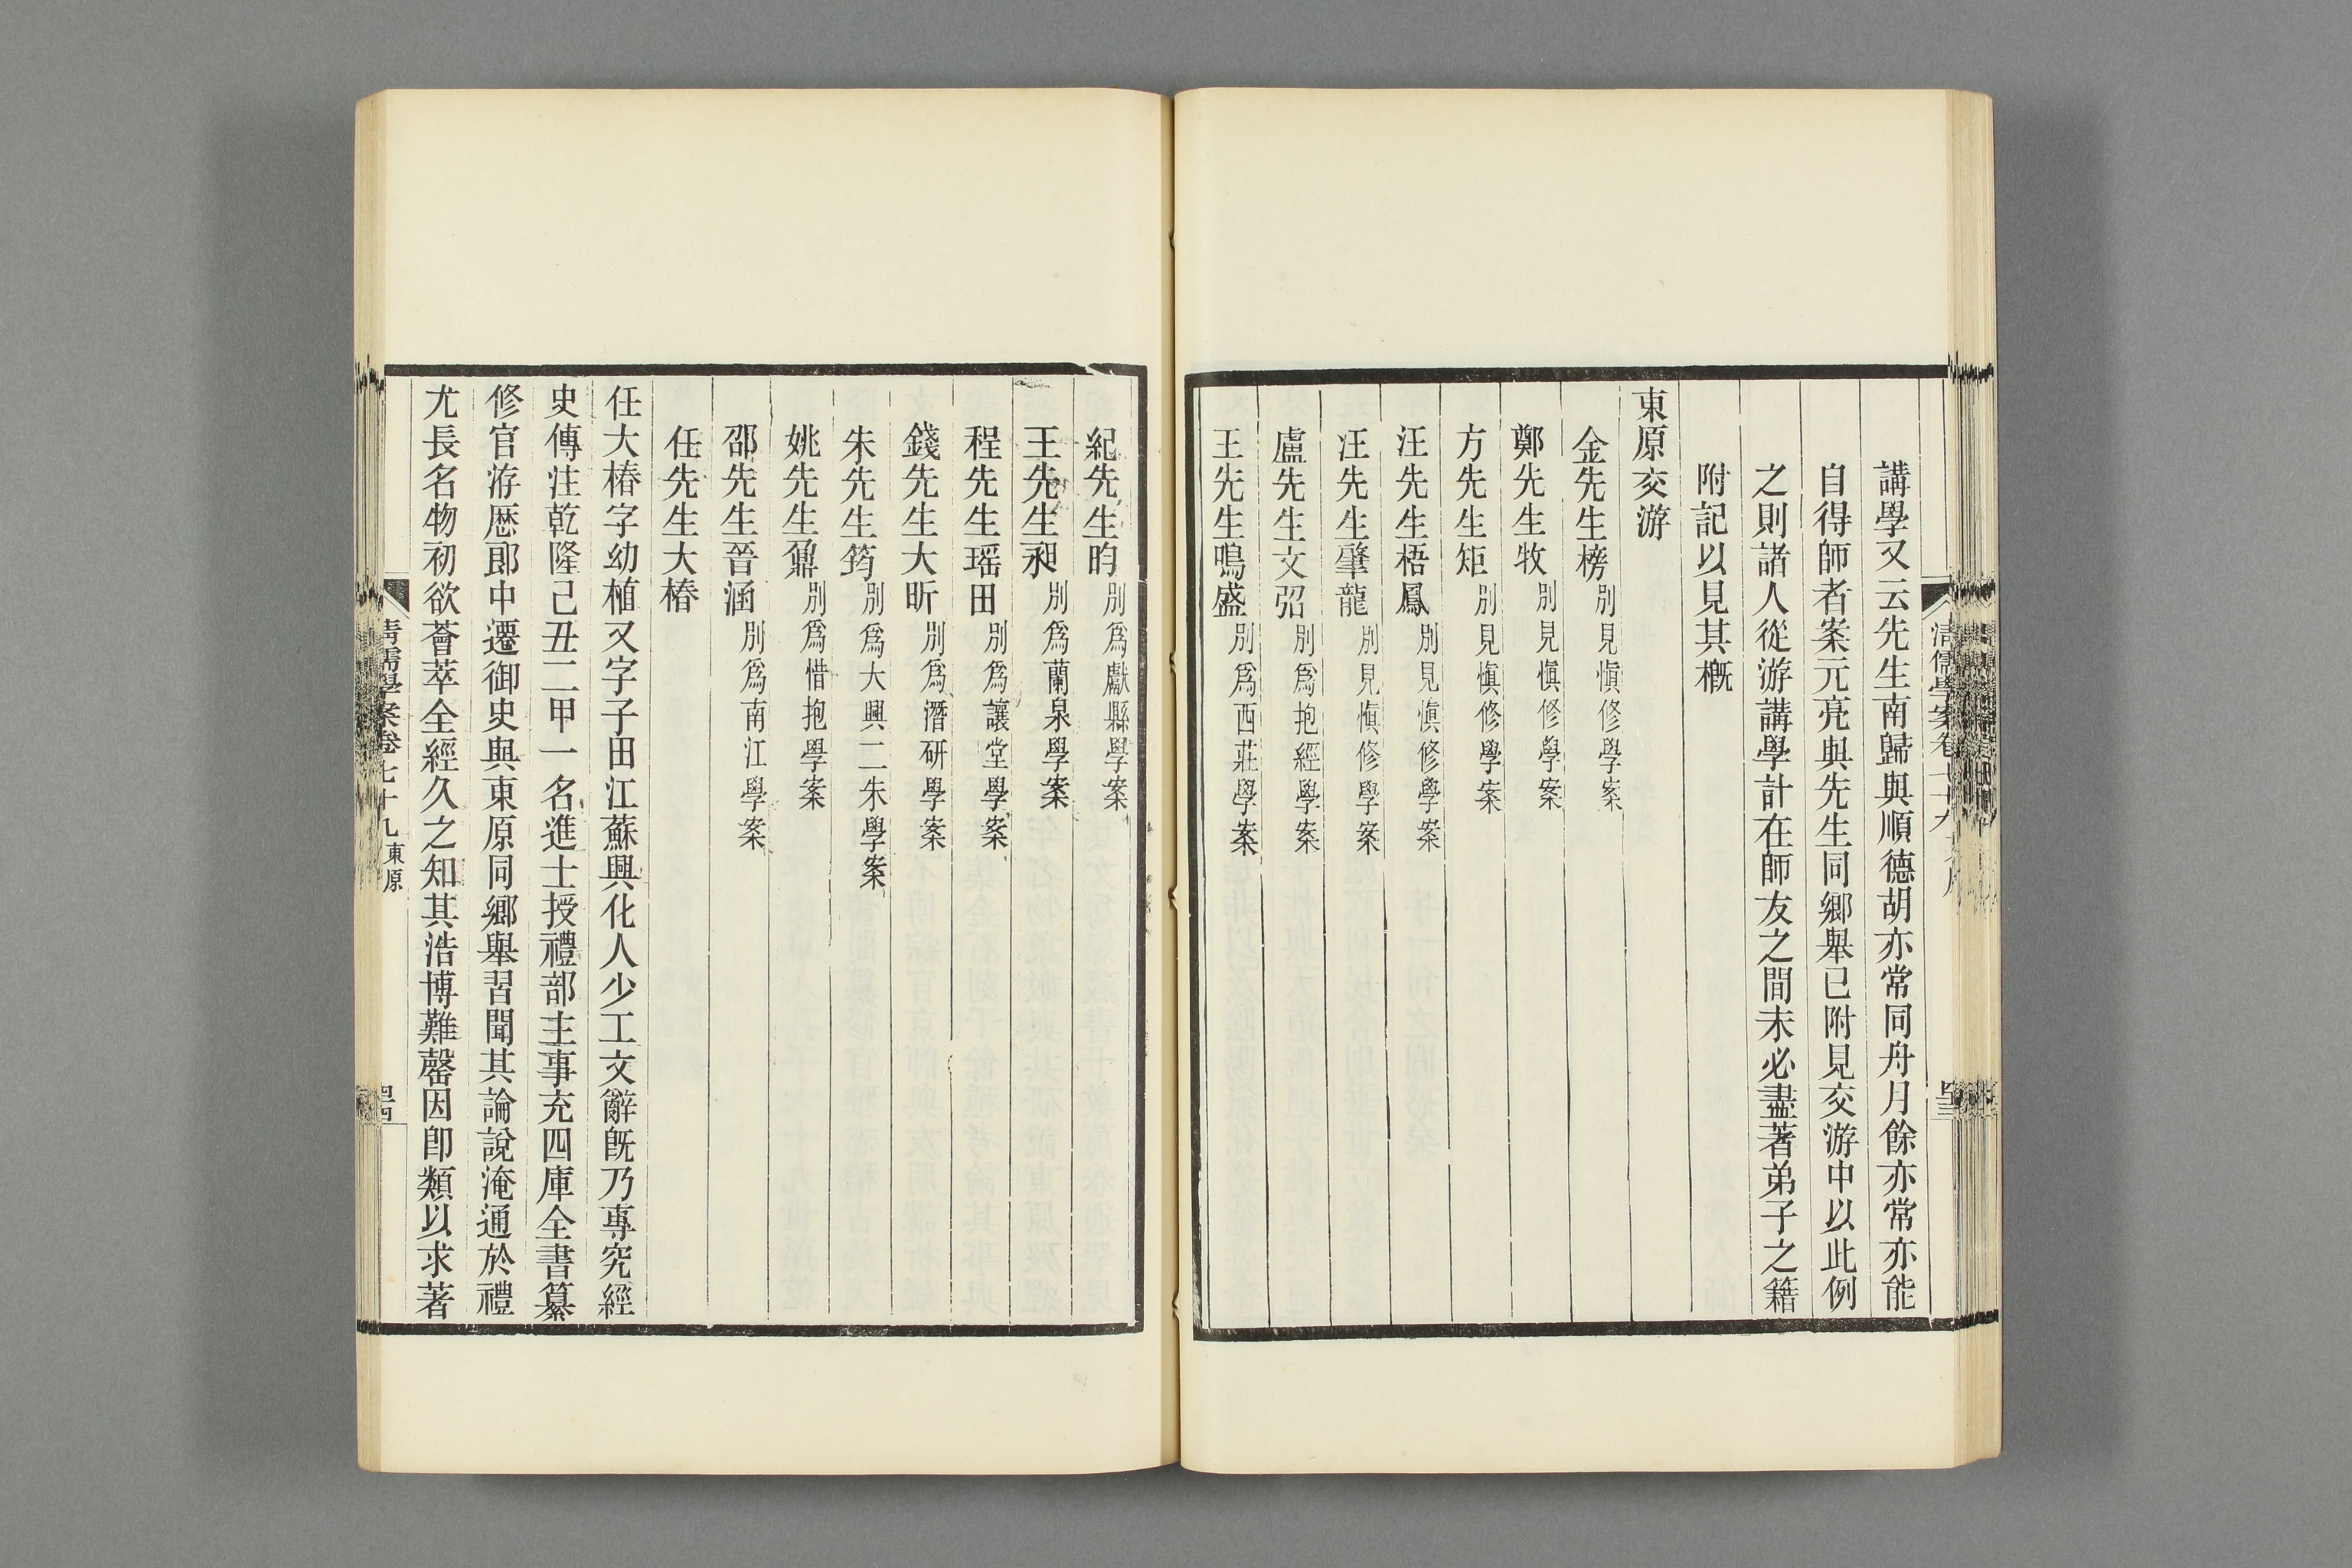 講學又云先生南歸與順德胡亦常同舟月餘亦常亦能
自得師者案元亮與先生同鄉舉已附見交游中以此例
之則諸人從游講學計在師友之間未必盡著弟子之籍
附記以見其概
東原交游
金先生榜別見愼修學案
鄭先生牧別見愼修學案
方先生矩別見愼修學案
汪先生梧鳳別見愼修學案
汪先生肇龍別見愼修學案
盧先生文弨別爲抱經學案
王先生鳴盛別爲西莊學案
紀先生昀別爲獻縣學案
王先生昶別爲蘭泉學案
程先生瑶田別爲讓堂學案
錢先生大昕別爲潛研學案
朱先生筠別爲大興二朱學案
姚先生鼐別爲惜抱學案
邵先生晉涵別爲南江學案
任先生大椿
任大椿字幼植又字子田江蘇興化人少工文辭旣乃專究經
史傳注乾隆己丑二甲一名進士授禮部主事充四庫全書纂
修官洊厯郎中遷御史與東原同鄉舉習聞其論說淹通於禮
尤長名物初欲薈萃全經久之知其浩博難罄因卽類以求著
清儒學案卷七十九 東原
四四